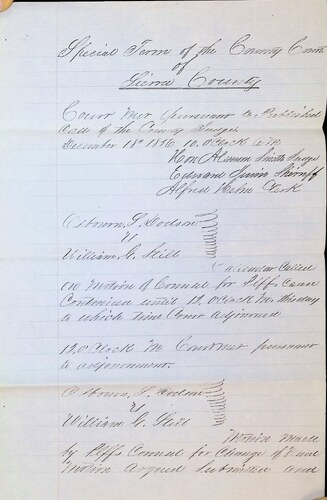 Special Term of the County Court
of
Sierra County
Court Met pursuant to Published
Call of the County Judge
December 18th 1856 10. O'Clock A.M.
Hon Alanson Smith Judge
Edward Sheriff
Alfred Helm Clerk
Osburn. S. Dodson
vs
William. G. Still
Calendar Called
on Motion of Counsel for Plffs Cause
Continued until 12. O'Clock M. this day
to which time Court Adjourned
12. O Clock M Court Met pursuant
to adjournment.
Osburn. S. Dodson
vs
William G. Still
Motion Made
by Plffs Counsel for Change of
Motion Argued Submitted and